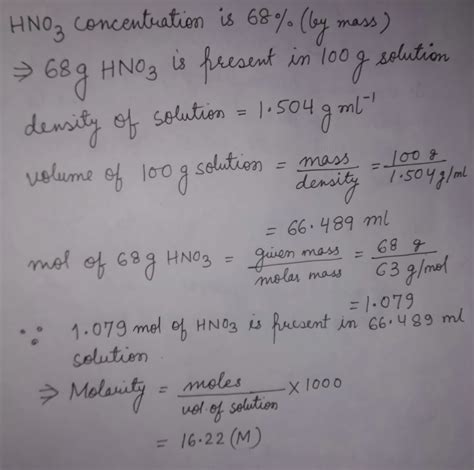 HNO3 concentration is 68% (by mass)
⇒ 68g HNO3 is present in 100 g solution
density of solution = 1.504 g ml⁻¹
volume of 100 g solution = mass/density = 100 g/1.504 g/ml
= 66.489 ml
mol of 68 g HNO3 = given mass/molar mass = 68 g/63 g/mol
= 1.079
∵ 1.079 mol of HNO3 is present in 66.489 ml
solution
⇒ Molarity = moles/vol. of solution × 1000
= 16.22 (M)